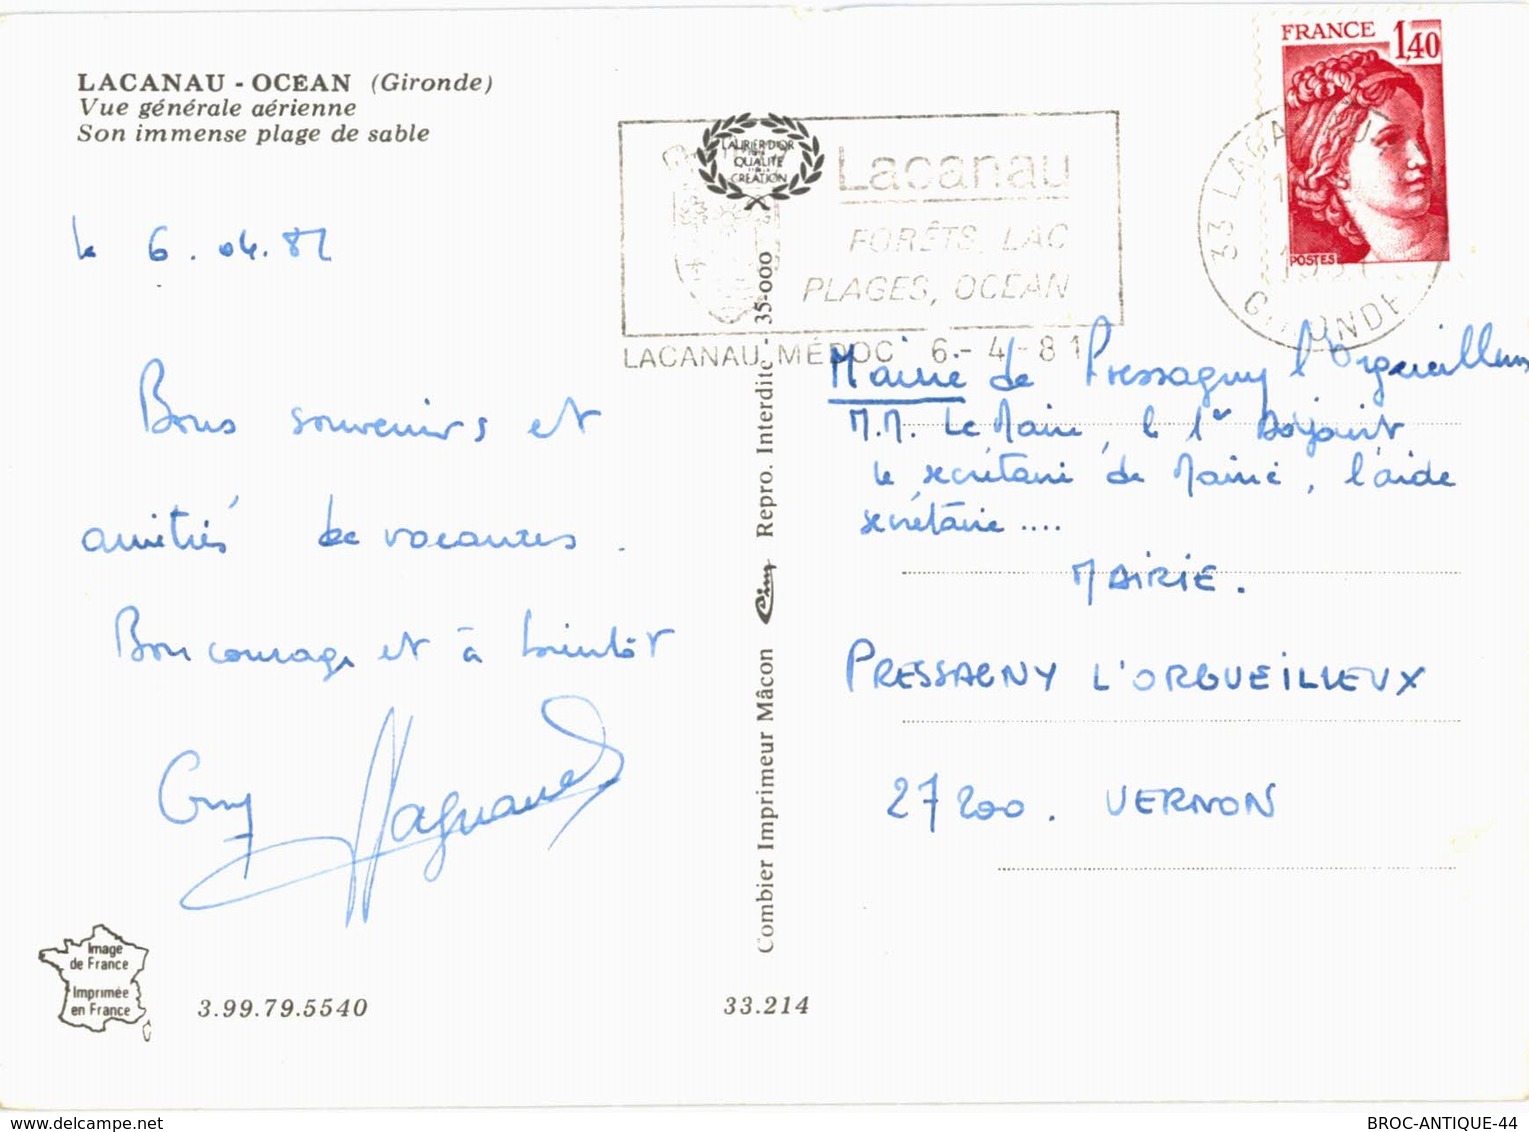 LACANAU - OCEAN (Gironde)
Vue générale aérienne
Son immense plage de sable
le 6.04.81
Bons souvenirs et
amitiés de vacances.
Bon courage et à bientôt
Guy
Image
de France
Imprimée
en France
3.99.79.5540
33.214
Combier Imprimeur Mâcon Cim Repro. Interdite - 35-000
LAURIER D'OR
QUALITÉ
CREATION
Lacanau
FORÊTS, LAC
PLAGES, OCEAN
LACANAU MÉDOC 6-4-81
FRANCE 1,40
POSTES
33 LACANAU
GIRONDE
Mairie de Pressagny l'Orgueilleux
M.M. Le Maire, le 1er Adjoint
le secrétaire de Mairie, l'aide
secrétaire ....
MAIRIE.
PRESSAGNY L'ORGUEILLEUX
27200. VERNON
BROC-ANTIQUE-44